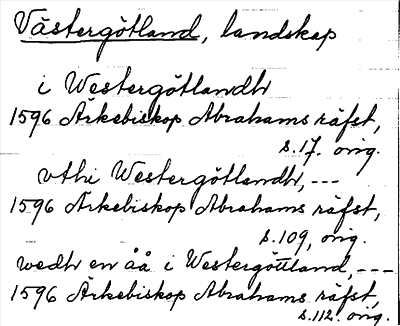 Västergötland, landskap
i Westergötlandh
1596 Ärkebiskop Abrahams räfst,
s. 17. orig.
vthi Westergötlandh, ---
1596 Ärkebiskop Abrahams räfst,
s. 109, orig.
wedh en åå i Westergöttland, ---
1596 Ärkebiskop Abrahams räfst,
s. 112. orig.